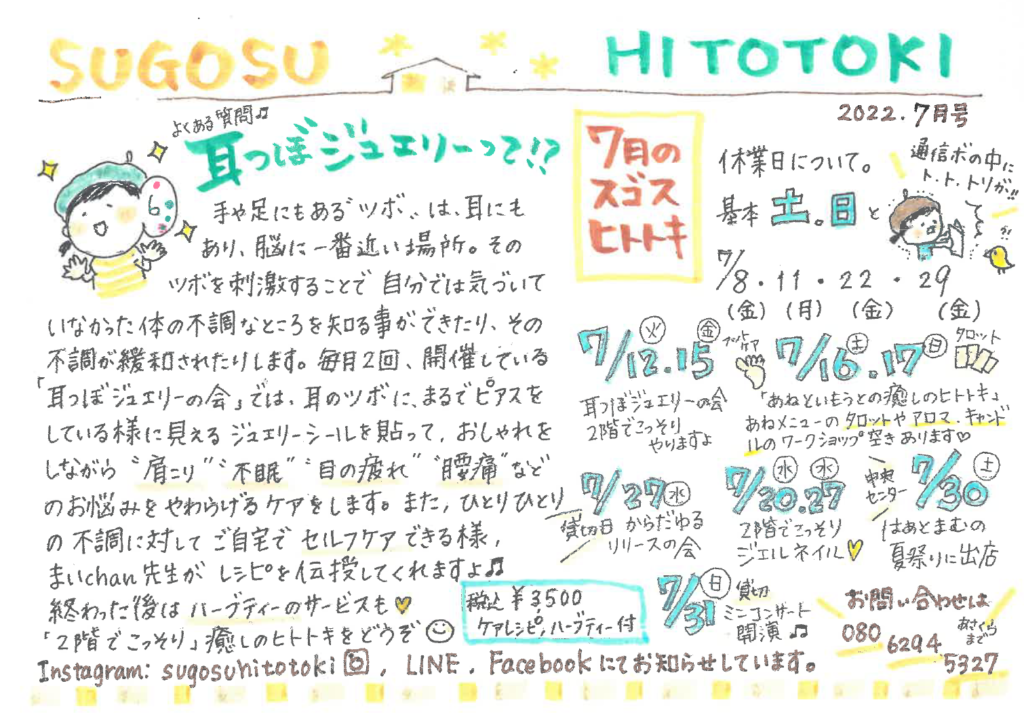 SUGOSU HITOTOKI
2022.7月号
よくある質問♫
耳つぼジュエリーって!?
手や足にもある"ツボ"は、耳にも
あり、脳に一番近い場所。その
ツボを刺激することで自分では気づいて
いなかった体の不調なところを知る事ができたり、その
不調が緩和されたりします。毎月2回、開催している
「耳つぼジュエリーの会」では、耳のツボに、まるでピアスを
している様に見えるジュエリーシールを貼って、おしゃれを
しながら"肩こり""不眠""目の疲れ""腰痛"など
のお悩みをやわらげるケアをします。また、ひとりひとり
の不調に対してご自宅でセルフケアできる様,
まいchan先生がレシピを伝授してくれますよ♫
終わった後はハーブティーのサービスも
「2階でこっそり」癒しのヒトトキをどうぞ
税込¥3500
ケアレシピ,ハーブティー付
7月の
スゴス
ヒトトキ
休業日について。
基本 土.日と
7/8.11.22.29
(金)(月)(金)(金)
通信ボの中に
ト、ト、トリが!!
?!
7/12.15
火 金
耳つぼジュエリーの会
2階でこっそり
やりますよ
フットケア
7/16.17
土 日
タロット
「あねといもうとの癒しのヒトトキ」
あねメニューのタロットやアロマ.キャンド
ルのワークショップ空きあります♡
7/27 水
貸切日 からだゆる
リリースの会
7/20.27
水 水
2階でこっそり
ジェルネイル
中央
センター
7/30 土
はあとまむの
夏祭りに出店
7/31 日
貸切
ミニコンサート
開演♫
お問い合わせは
080
6294
5327
あさくら
まで
Instagram: sugosuhitotoki, LINE. Facebookにてお知らせしています。